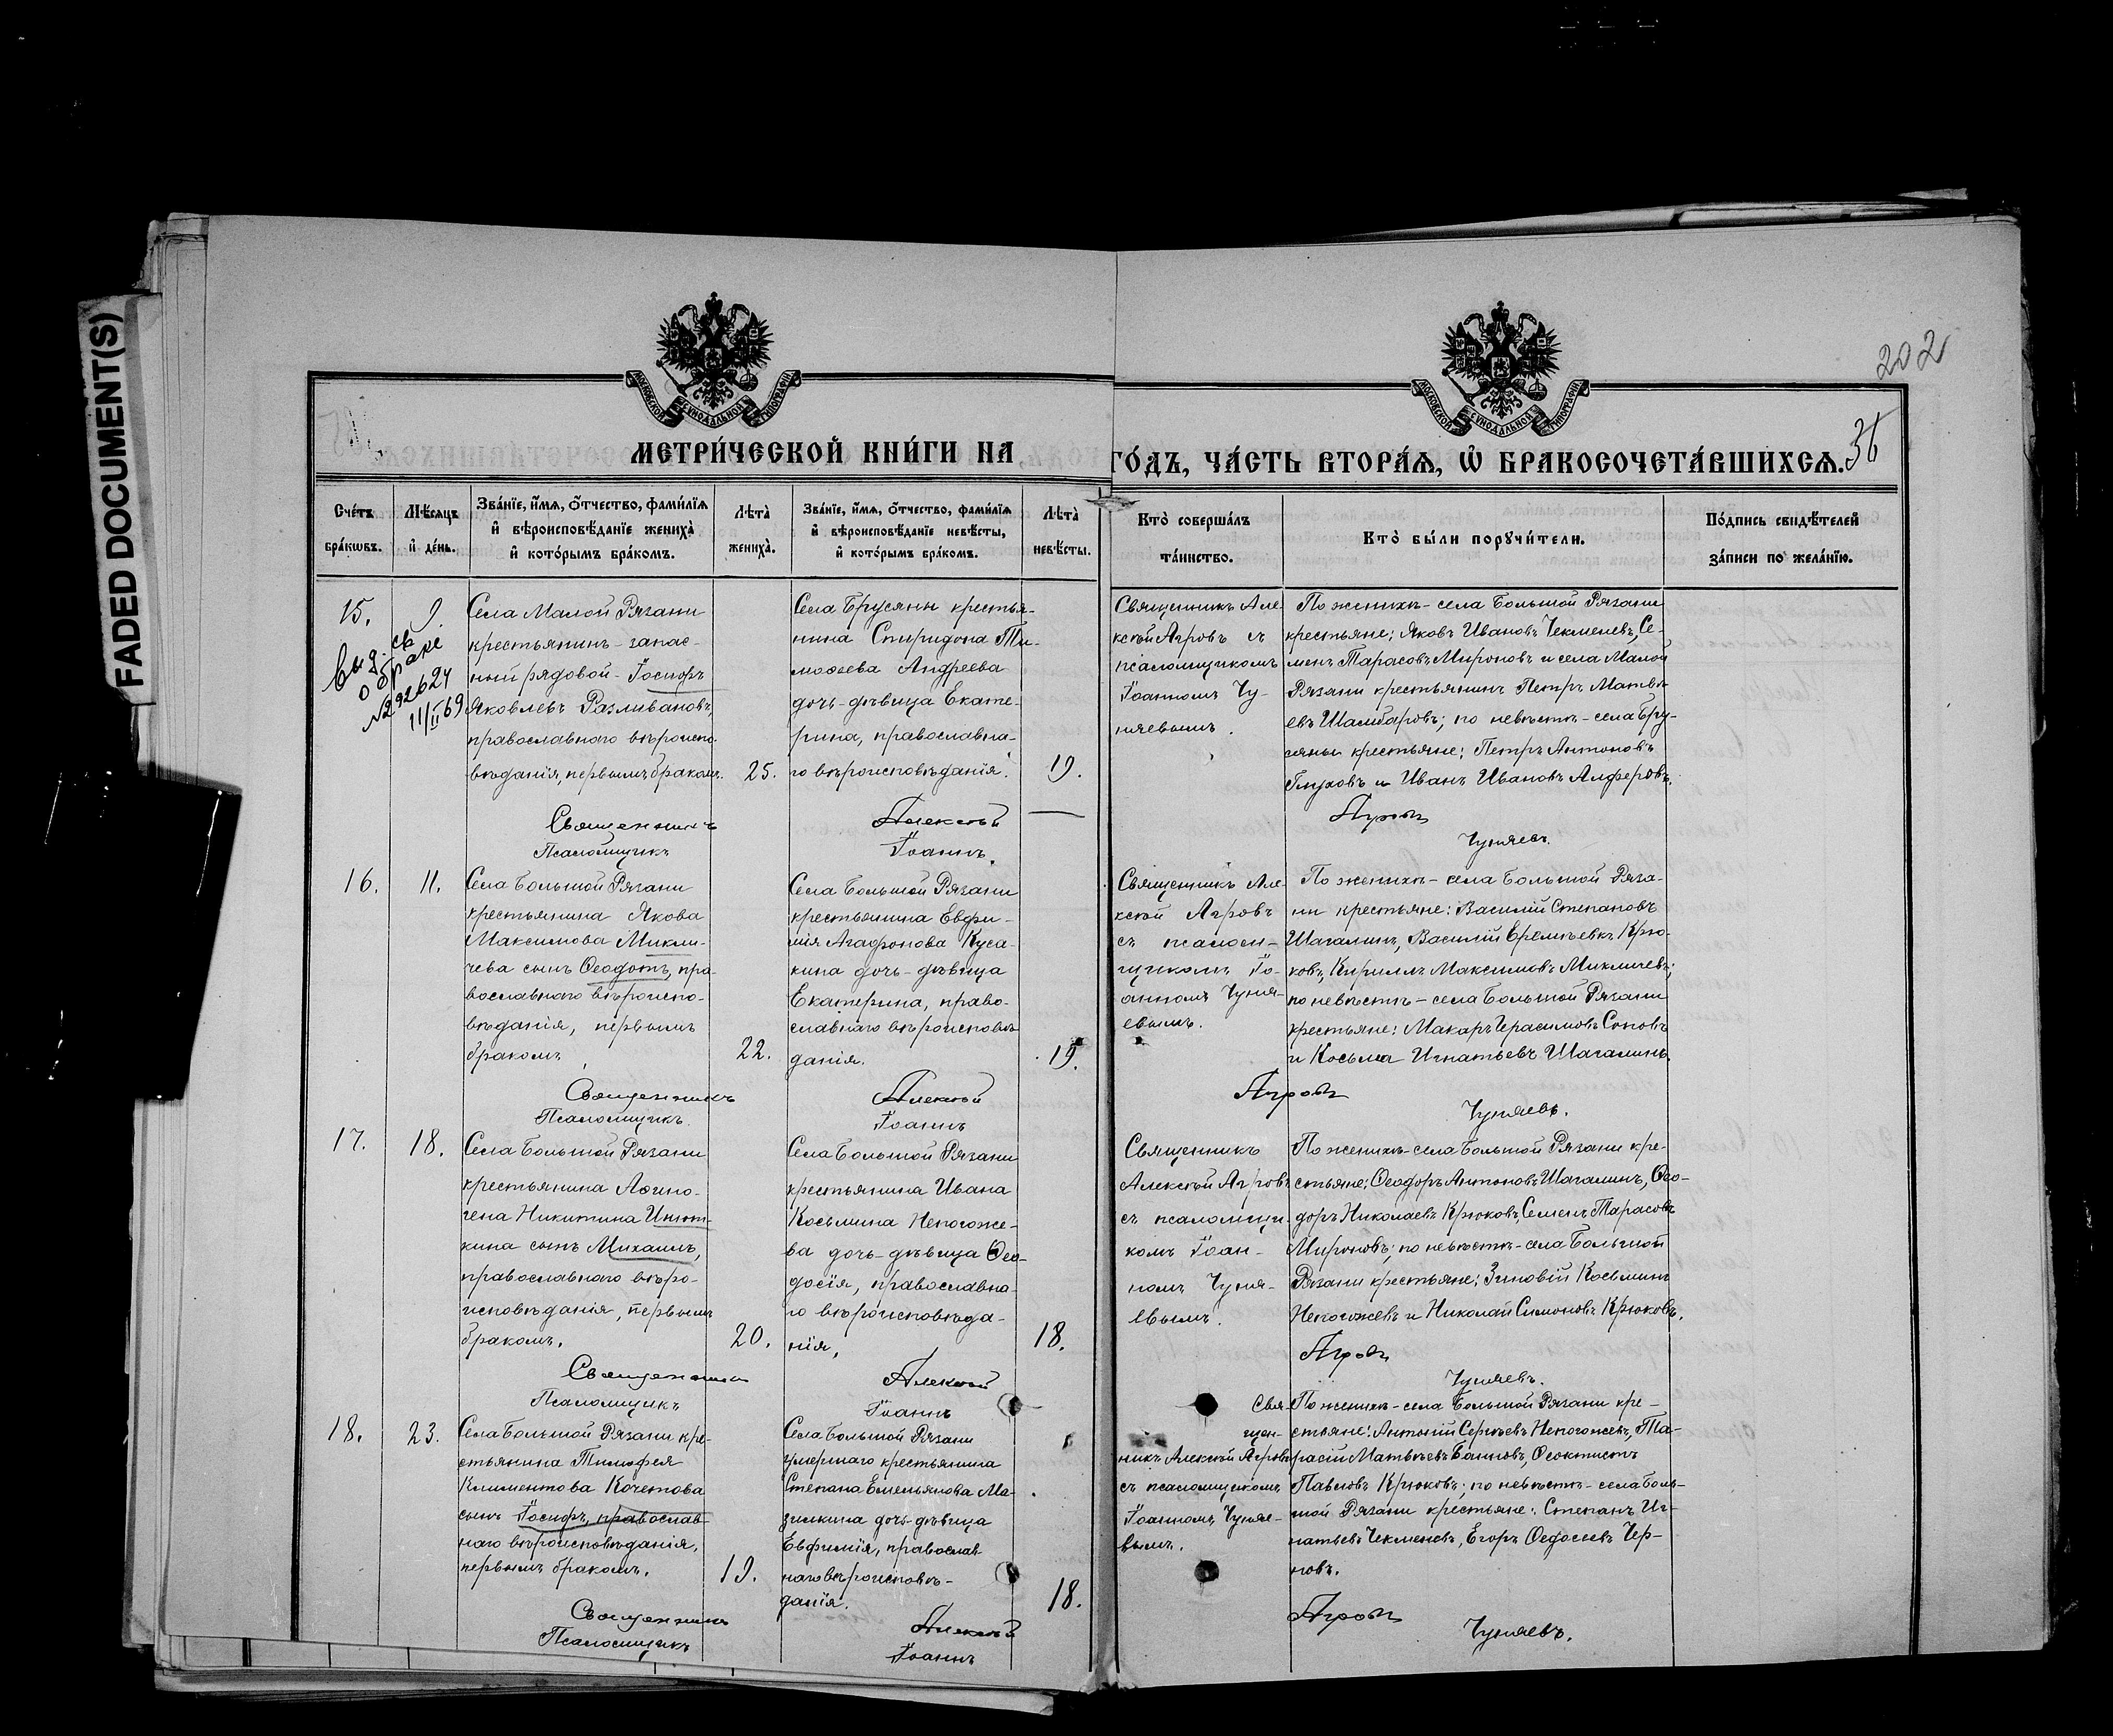 FADED DOCUMENT(S)
202
36
МОСКОВСКОЙ СѴНОДАЛЬНОЙ ТИПОГРАФІИ
МОСКОВСКОЙ СѴНОДАЛЬНОЙ ТИПОГРАФІИ
МЕТРИ́ЧЕСКОЙ КНИ́ГИ НА
ГО́ДЪ, ЧА́СТЬ ВТОРА́Я, Ѡ БРАКОСОЧЕТА́ВШИХСЯ.
Сче́тъ
бра́кѡвъ.
Мѣ́сяцъ
и де́нь.
Зва́нїе, и́мя, ѻ́тчество, фами́лїя
и вѣроисповѣ́данїе жениха̀
и кото́рымъ бра́комъ.
Лѣта̀
жениха̀.
Зва́нїе, и́мя, ѻ́тчество, фами́лїя
и вѣроисповѣ́данїе невѣ́сты,
и кото́рымъ бра́комъ.
Лѣта̀
невѣ́сты.
Кто̀ соверша́лъ
та́инство.
Кто̀ бы́ли порꙋчи́тели.
По́дпись свидѣ́телей
за́писи по жела́нїю.
15.
9.
Выд. св.
о браке
№292624
11/II 69
Села Малой Рязани
крестьянинъ-запас-
ной рядовой-Іосифъ
Яковлевъ Разливановъ,
православнаго вѣроиспо-
вѣданія, первымъ бракомъ.
25.
Села Брусяны крестья-
нина Спиридона Ти-
моѳеева Андреева
дочь-дѣвица Екате-
рина, православна-
го вѣроисповѣданія.
19.
Священникъ Але-
ксѣй Агровъ съ
псаломщикомъ
Іоанномъ Чу-
няевымъ.
По женихѣ-села Большой Рязани
крестьяне: Яковъ Ивановъ Чекменевъ, Се-
менъ Тарасовъ Мироновъ и села Малой
Рязани крестьянинъ Петръ Матвѣ-
евъ Шамбаровъ; по невѣстѣ-села Бру-
сяны крестьяне: Петръ Антоновъ
Глуховъ и Иванъ Ивановъ Алферовъ.
Священникъ Алексѣй Агровъ
Псаломщикъ Іоаннъ Чуняевъ.
16.
11.
Села Большой Рязани
крестьянина Якова
Максимова Микли-
чева сынъ Ѳеодотъ, пра-
вославнаго вѣроиспо-
вѣданія, первымъ
бракомъ
22.
Села Большой Рязани
крестьянина Евфи-
мія Агафонова Куса-
кина дочь-дѣвица
Екатерина, право-
славнаго вѣроисповѣ-
данія.
19.
Священникъ Але-
ксѣй Агровъ
съ псалом-
щикомъ Іо-
анномъ Чуня-
евымъ.
По женихѣ-села Большой Ряза-
ни крестьяне: Василій Степановъ
Шагалинъ, Василій Еремѣевъ Крю-
ковъ, Кириллъ Максимовъ Микличевъ;
по невѣстѣ-села Большой Рязани
крестьяне: Макаръ Герасимовъ Соповъ
и Косьма Игнатьевъ Шагалинъ.
Священникъ Алексѣй Агровъ
Псаломщикъ Іоаннъ Чуняевъ.
17.
18.
Села Большой Рязани
крестьянина Логино-
гена Никитина Инют-
кина сынъ Михаилъ,
православнаго вѣро-
исповѣданія, первымъ
бракомъ.
20.
Села Большой Рязани
крестьянина Ивана
Косьмина Непогоже-
ва дочь-дѣвица Ѳео-
досія, православна-
го вѣроисповѣда-
нія.
18.
Священникъ
Алексѣй Агровъ
съ псаломщи-
комъ Іоан-
номъ Чуня-
евымъ.
По женихѣ-села Большой Рязани кре-
стьяне: Ѳеодоръ Антоновъ Шагалинъ, Ѳео-
доръ Николаевъ Крюковъ, Семенъ Тарасовъ
Мироновъ; по невѣстѣ-села Большой
Рязани крестьяне: Зиновій Косьминъ
Непогожевъ и Николай Симоновъ Крюковъ.
Священникъ Алексѣй Агровъ
Псаломщикъ Іоаннъ Чуняевъ.
18.
23.
Села Большой Рязани кре-
стьянина Тимофея
Климентова Кочетова
сынъ Іосифъ, православ-
наго вѣроисповѣданія,
первымъ бракомъ.
19.
Села Большой Рязани
умершаго крестьянина
Степана Емельянова Ма-
зилкина дочь-дѣвица
Евфимія, православ-
наго вѣроисповѣ-
данія.
18.
Свя-
щен-
никъ Алексѣй Агровъ
съ псаломщикомъ
Іоанномъ Чуняе-
вымъ.
По женихѣ-села Большой Рязани кре-
стьяне: Антоній Сергѣевъ Непогожевъ, Та-
расій Матвѣевъ Банновъ, Ѳеоктистъ
Павловъ Крюковъ; по невѣстѣ-села Боль-
шой Рязани крестьяне: Степанъ Иг-
натьевъ Чекменевъ, Егоръ Ѳедосеевъ Чер-
новъ.
Священникъ Алексѣй Агровъ
Псаломщикъ Іоаннъ Чуняевъ.